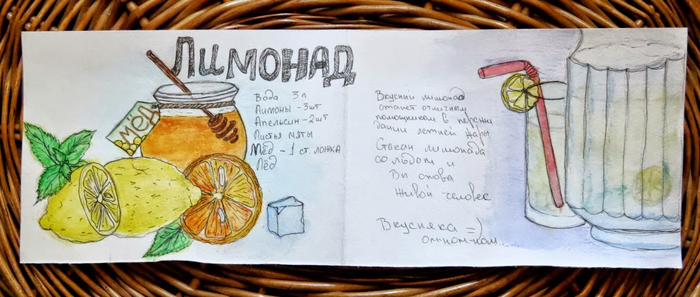 Лимонад
мёд
Вода 3л
Лимоны - 3шт
Апельсин - 2шт
Листья мяты
Мёд - 1 ст. ложка
Лёд
Вкусный лимонад
станет отличным
помощником в
летней жары
Стакан лимонада
со льдом и
Вы снова
живой человек
Вкусняка =)